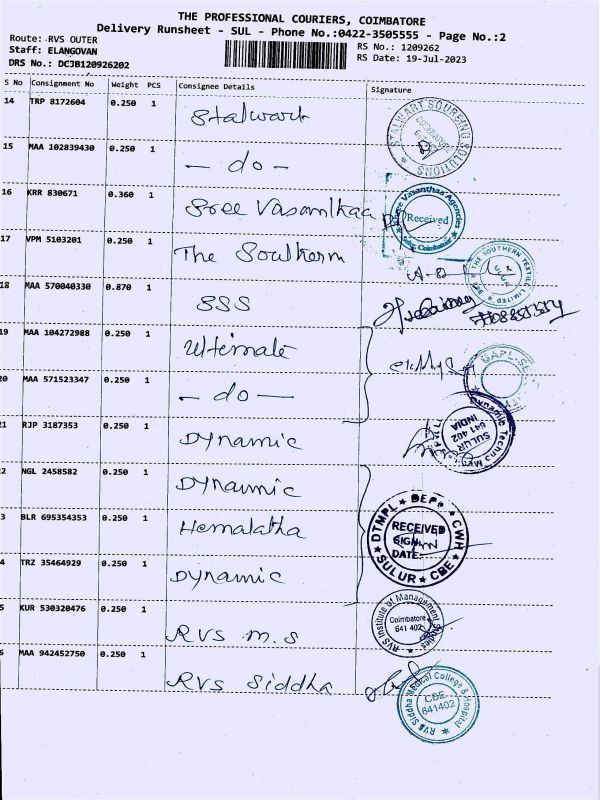 THE PROFESSIONAL COURIERS, COIMBATORE
Delivery Runsheet - SUL - Phone No.:0422-3505555 - Page No.:2
Route: RVS OUTER
Staff: ELANGOVAN
DRS No.: DCJB120926202
RS No.: 1209262
RS Date: 19-Jul-2023
S No Consignment No Weight PCS Consignee Details Signature
14 TRP 8172604 0.250 1 Stalwart
STALWART SOURCING SOLUTIONS
15 MAA 102839430 0.250 1 - do -
16 KRR 830671 0.360 1 Sree Vasanthaa
Sree Vasanthaa Agencies
Received
Coimbatore
17 VPM 5103201 0.250 1 The Southern
THE SOUTHERN TEXTILE LIMITED
18 MAA 570040330 0.870 1 SSS
19 MAA 104272988 0.250 1 Ultimate
20 MAA 571523347 0.250 1 - do -
21 RJP 3187353 0.250 1 Dynamic
Dynamic Techno
SULUR
641 402
INDIA
2 NGL 2458582 0.250 1 Dynamic
3 BLR 695354353 0.250 1 Hemalatha
DTMPL ★ DEPP ★ CWH ★ CBE ★ SULUR ★
RECEIVED
SIGN:
DATE:
4 TRZ 35464929 0.250 1 Dynamic
5 KUR 530320476 0.250 1 RVS M.S
RVS Institute of Management Studies
Coimbatore
641 402
6 MAA 942452750 0.250 1 RVS Siddha
RVS Siddha Medical College & Hospital
CBE
641402